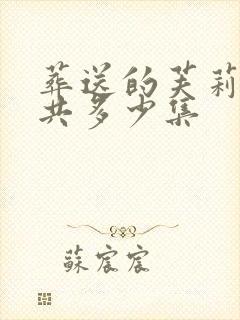 葬送的芙莉
共多少集
蘇宸宸